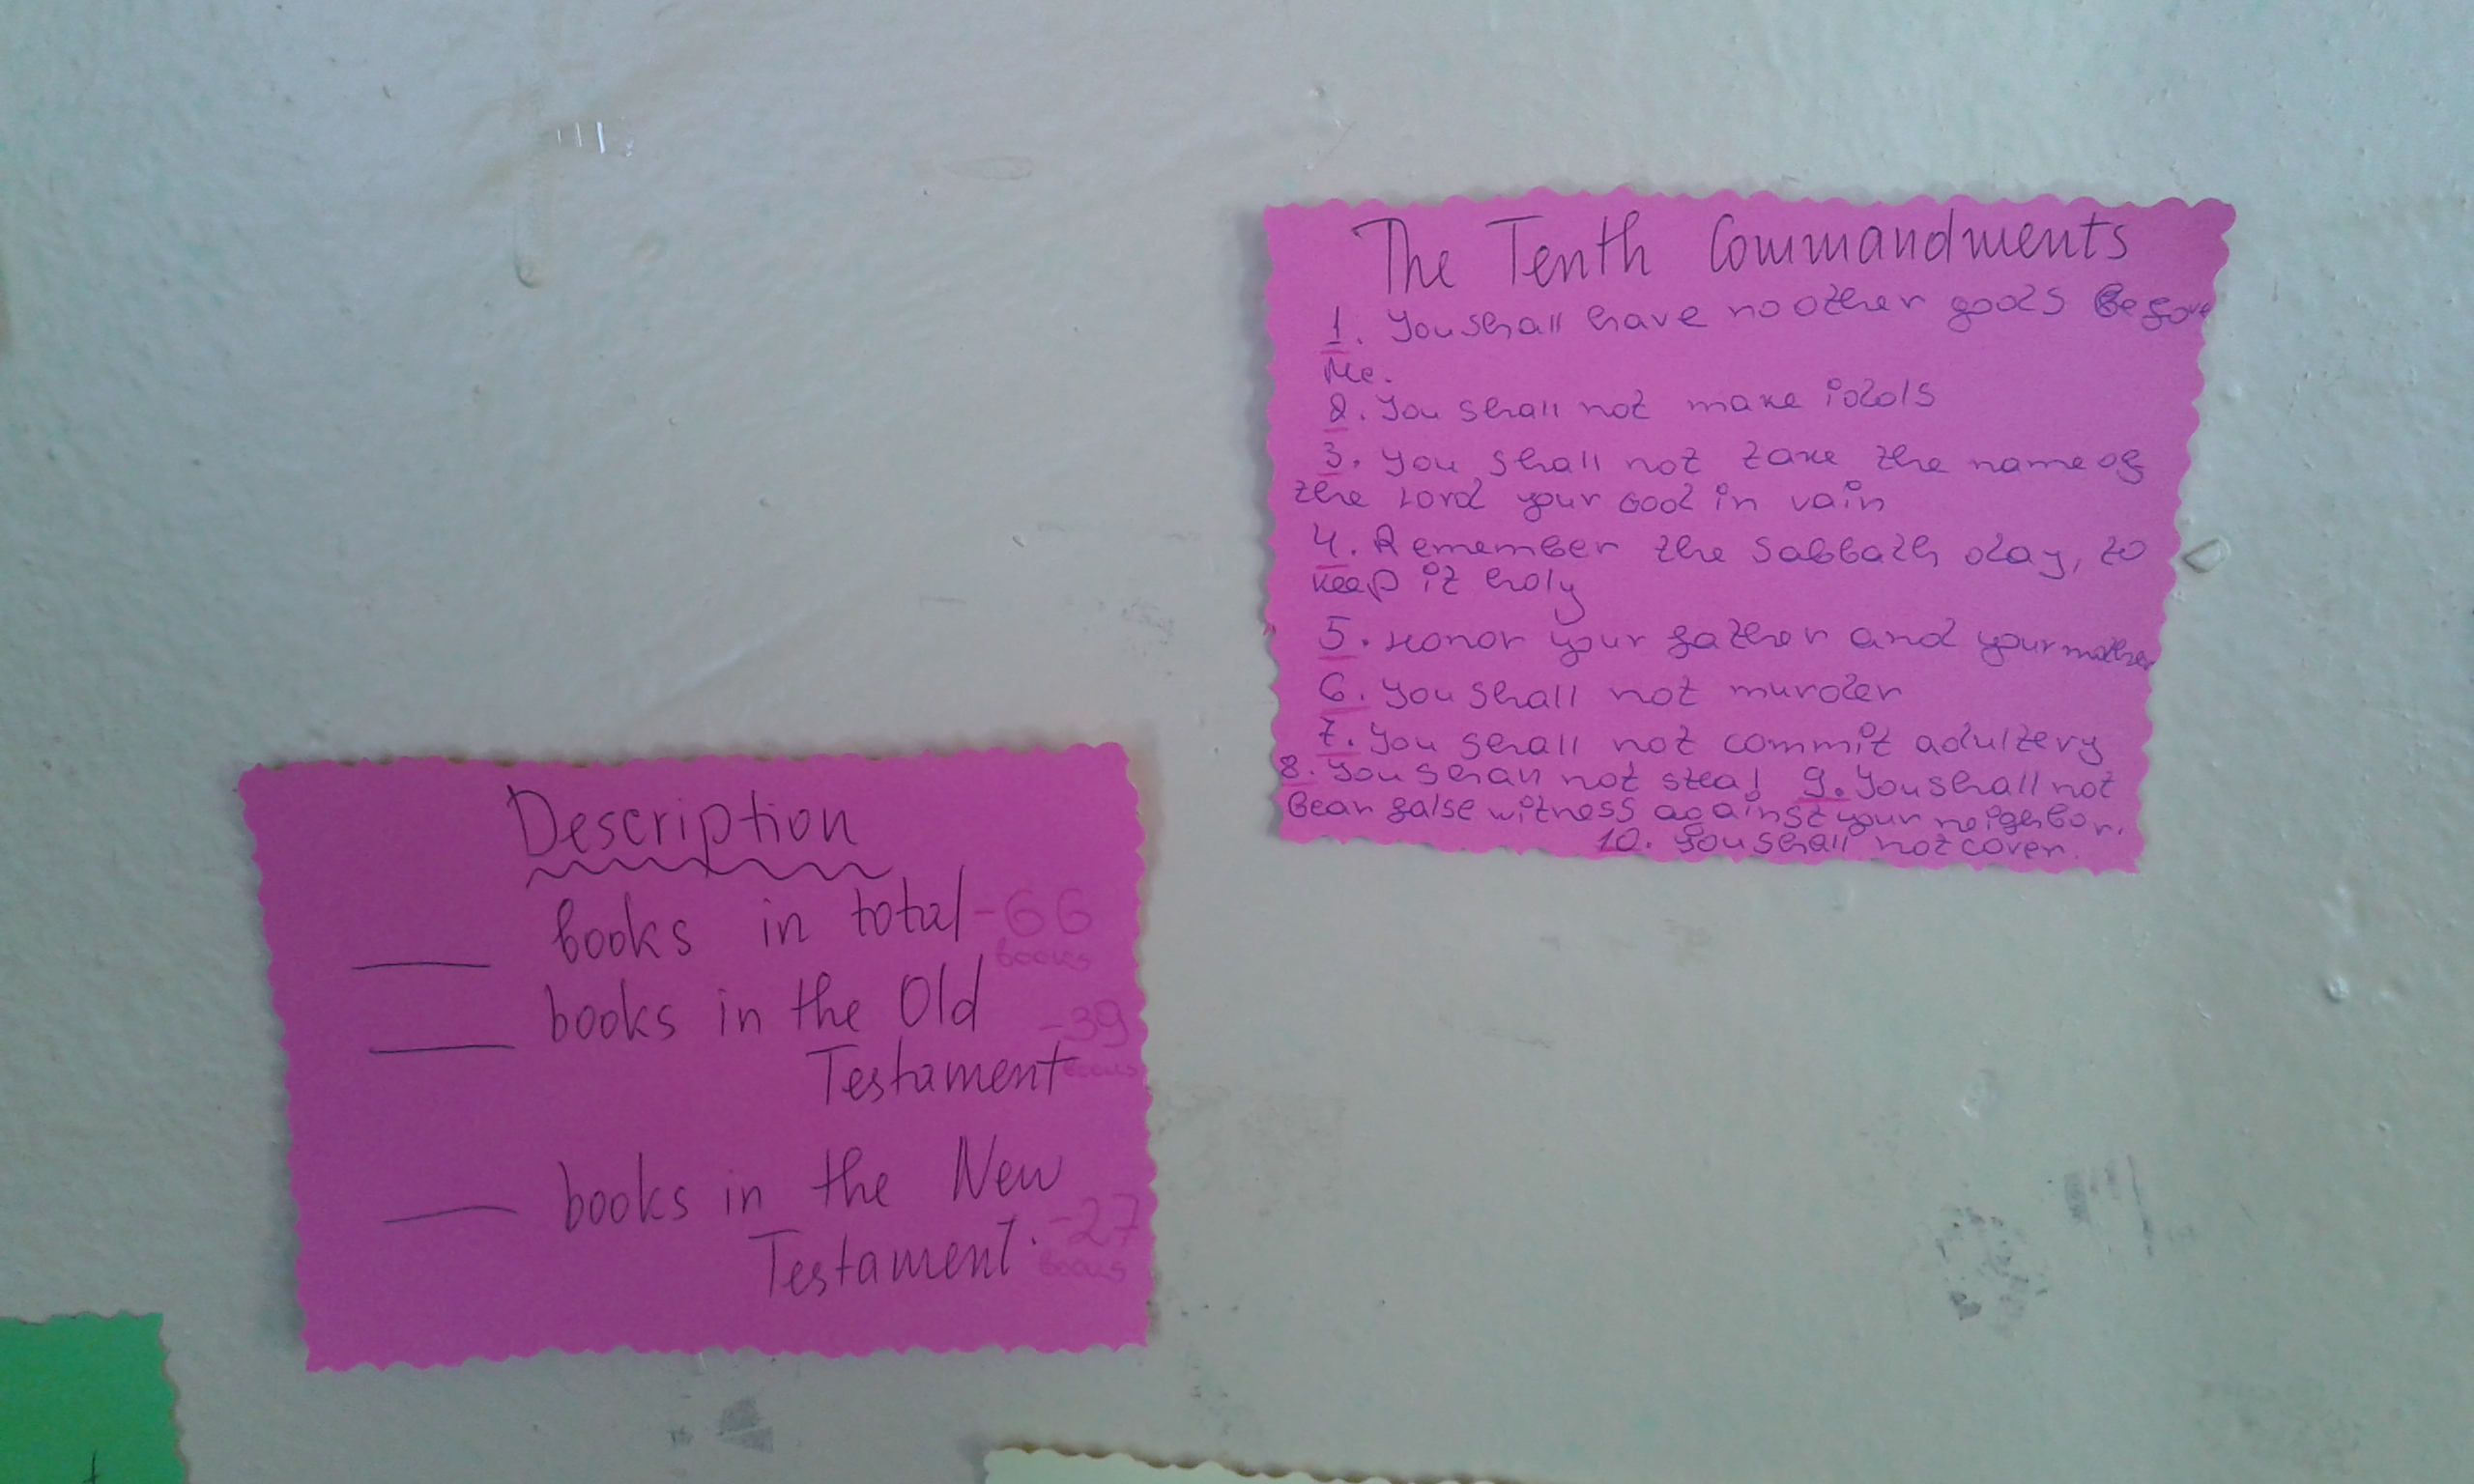 The Tenth Commandments
1. You shall have no other gods before
Me.
2. You shall not make idols
3. you shall not take the name of
the Lord your God in vain
4. Remember the Sabbath day, to
keep it holy
5. Honor your father and your mother
6. You shall not murder
7. You shall not commit adultery
8. You shall not steal 9. You shall not
Bear false witness against your neighbor.
10. You shall not cover.
Description
____ books in total - 66
books
____ books in the Old - 39
Testament books
____ books in the New
Testament. - 27
books
t